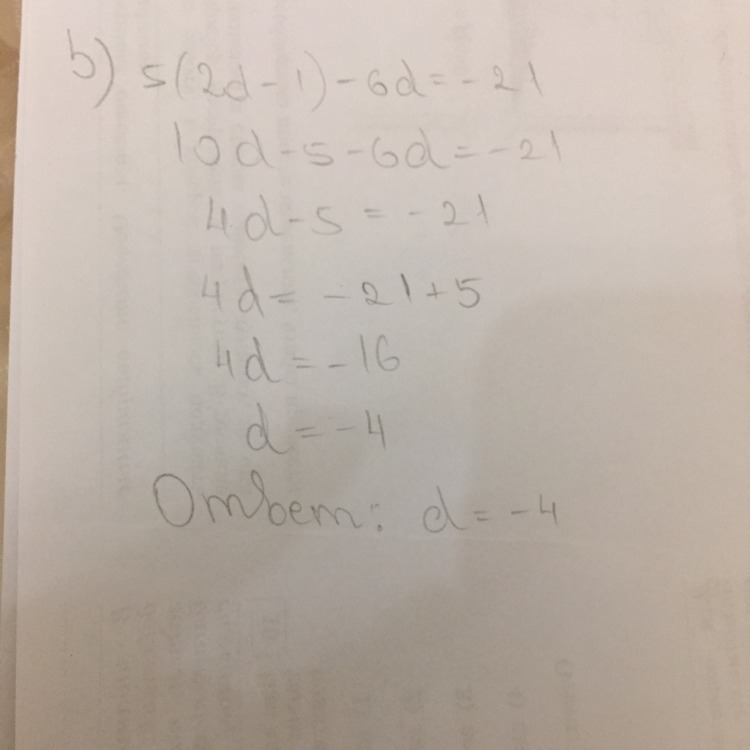 b) 5(2d-1)-6d=-21
10d-5-6d=-21
4d-5=-21
4d=-21+5
4d=-16
d=-4
Ответ: d=-4